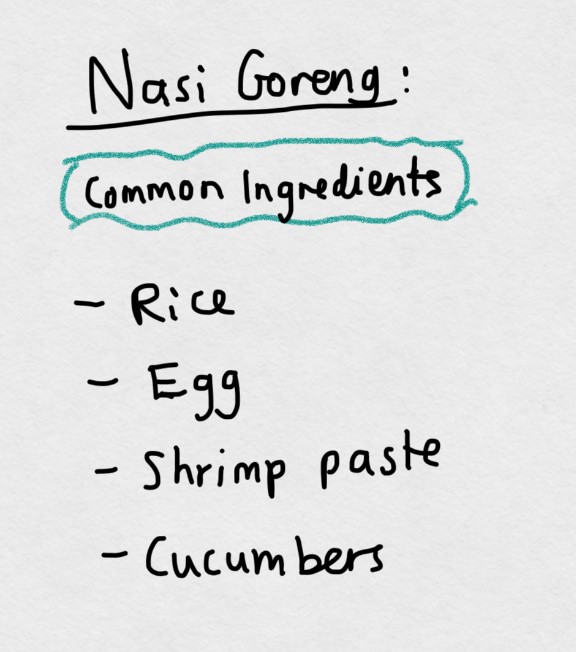 Nasi Goreng:
Common Ingredients
- Rice
- Egg
- Shrimp paste
- Cucumbers